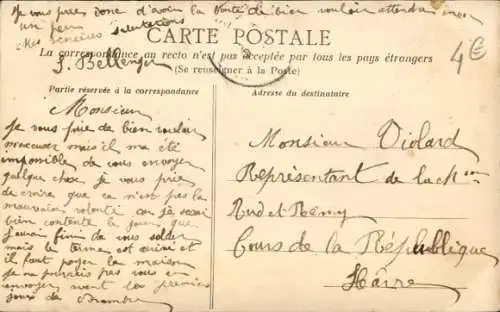 Je vous prie donc d'avoir la bonté de bien vouloir attendre encor
un peu
Mes sincères salutations
S. Bellenger
CARTE POSTALE
La correspondance au recto n'est pas acceptée par tous les pays étrangers
(Se renseigner à la Poste)
4€
Partie réservée à la correspondance
Monsieur
Je vous prie de bien vouloir
m'excuser mais il m'a été
impossible de vous envoyer
quelque chose je vous prie
de croire que ca n'est pas la
mauvaise volonté car je serai
bien contente le jour que
j'aurai fini de vous solder
mais le terme est arrivé et
il faut payer la maison
je ne pourrais pas vous en
envoyer avant les premiers
jours de
Adresse du destinataire
Monsieur Violard
Représentant de la
Rud et Rémy
Cours de la République
Hâvre